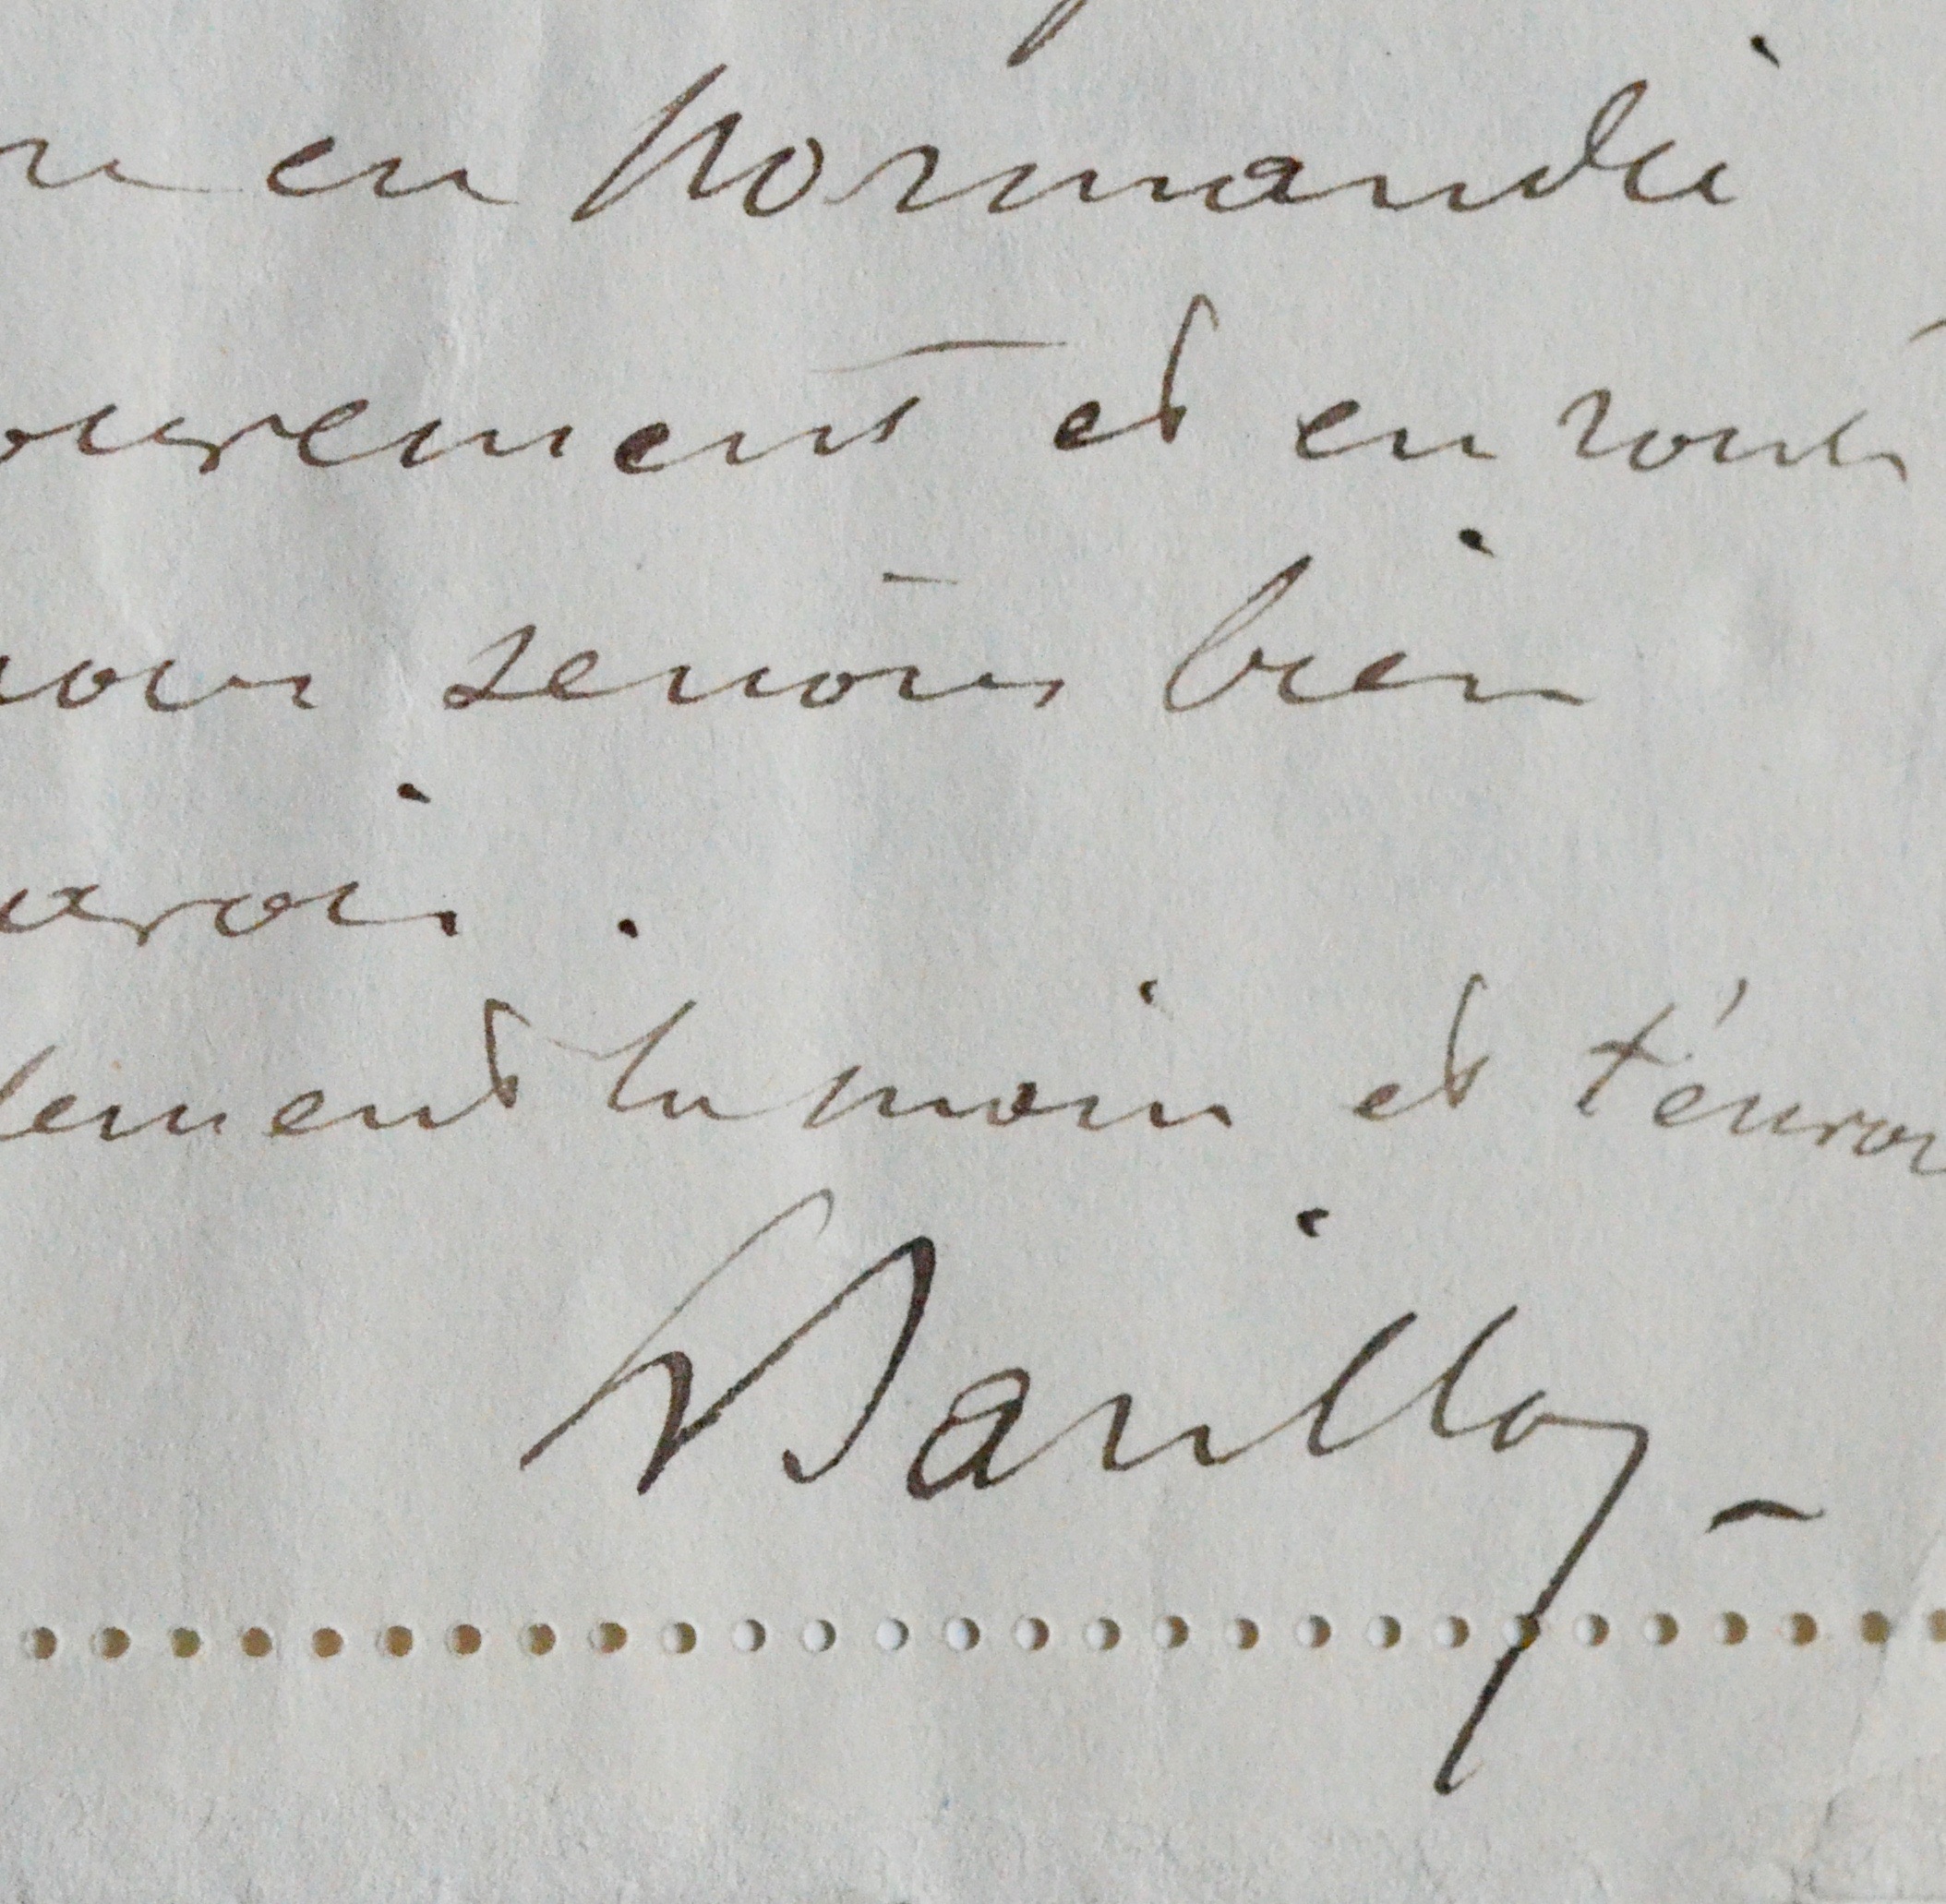 en Normandie
ouvement et en route
nous serions bien
avoir.
lement la main et t'envoi